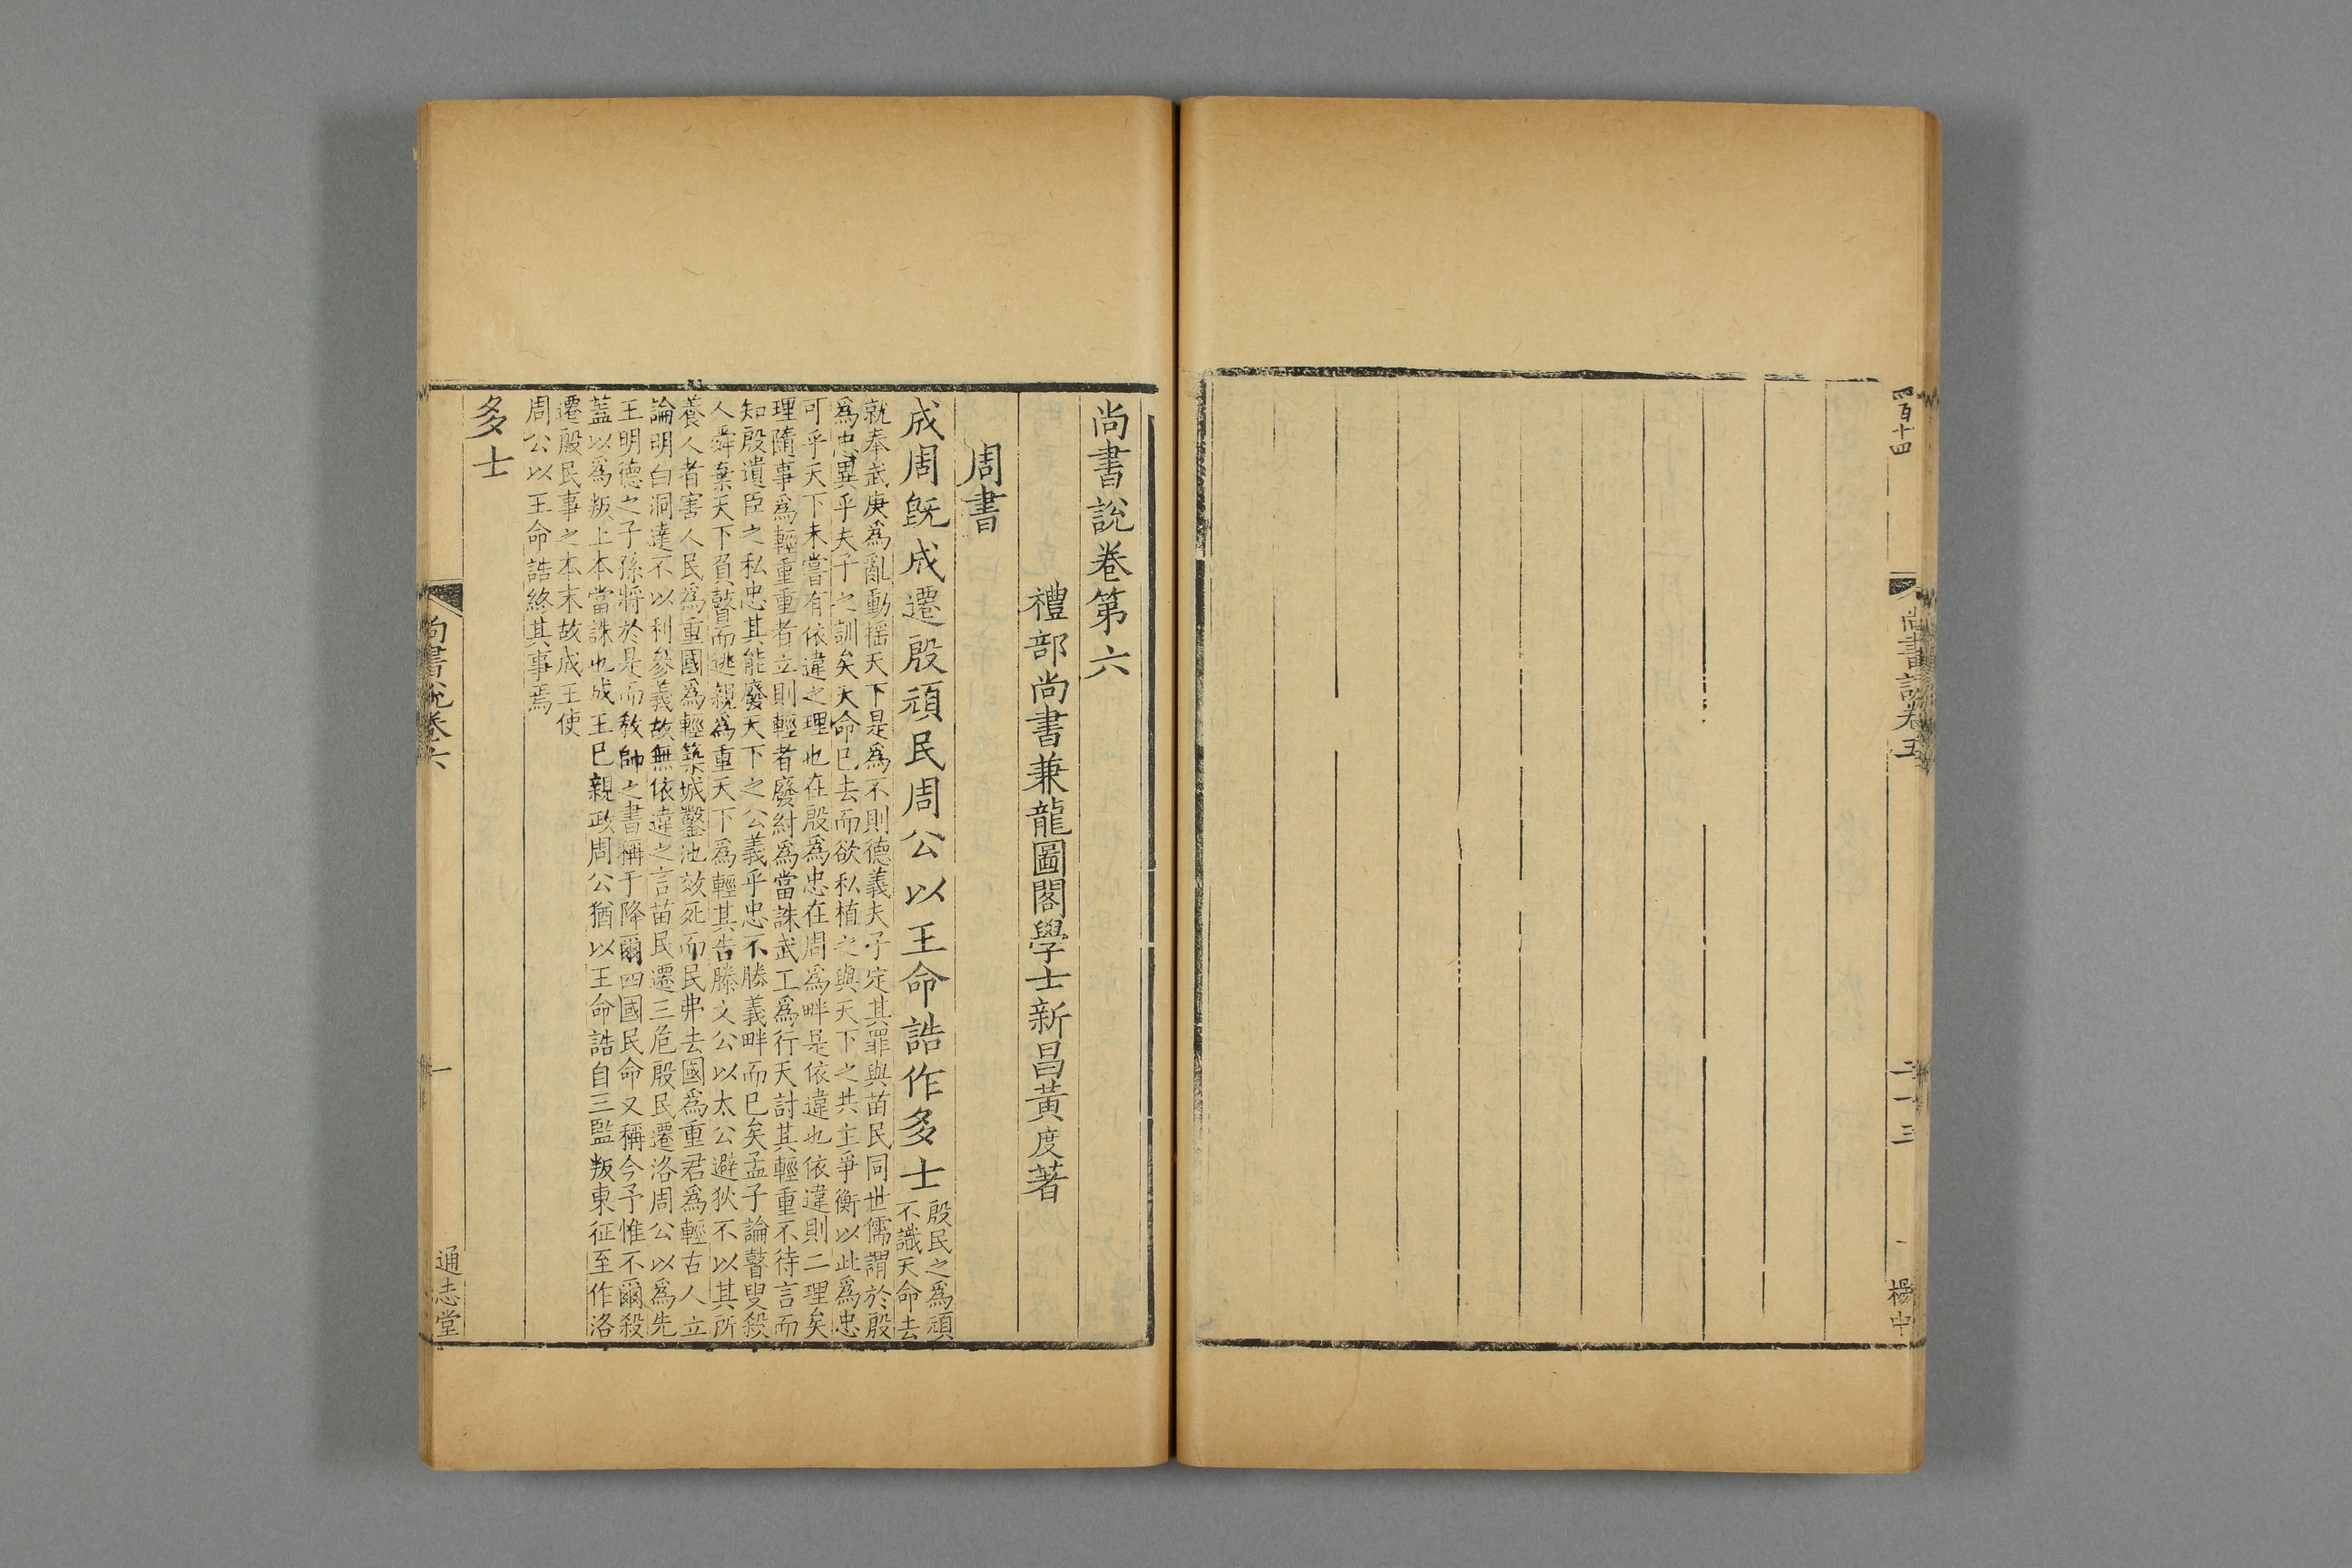 四百十四
尚書說卷五
二十三
楊中
尚書說卷第六
禮部尚書兼龍圖閣學士新昌黃度著
周書
成周旣成遷殷頑民周公以王命誥作多士
殷民之爲頑
不識天命去
就奉武庚爲亂動揺天下是爲不則德義夫子定其罪與苗民同世儒謂於殷
爲忠異乎夫子之訓矣天命已去而欲私植之與天下之共主爭衡以此爲忠
可乎天下未嘗有依違之理也在殷爲忠在周爲畔是依違也依違則二理矣
理隨事爲輕重重者立則輕者廢紂爲當誅武王爲行天討其輕重不待言而
知殷遺臣之私忠其能廢天下之公義乎忠不勝義畔而已矣孟子論瞽叟殺
人舜棄天下負瞽而逃親爲重天下爲輕其告滕文公以太公避狄不以其所
養人者害人民爲重國爲輕築城鑿池效死而民弗去國爲重君爲輕古人立
論明白洞達不以利參義故無依違之言苗民遷三危殷民遷洛周公以爲先
王明德之子孫將於是而敎帥之書稱于降爾四國民命又稱今予惟不爾殺
蓋以爲叛上本當誅也成王已親政周公猶以王命誥自三監叛東征至作洛
遷殷民事之本末故成王使
周公以王命誥終其事焉
多士
尚書說卷六
一
通志堂